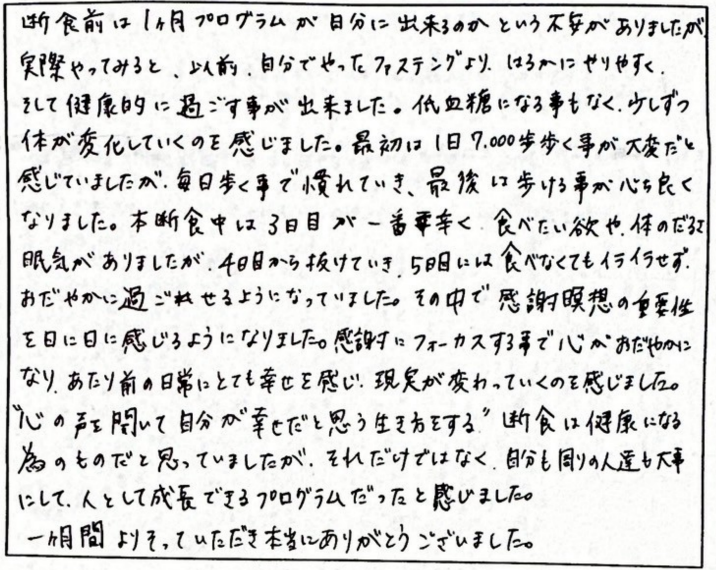 断食前は1ヶ月プログラムが自分に出来るのかという不安がありましたが、
実際やってみると、以前、自分でやったファスティングより、はるかにやりやすく、
そして健康的に過ごす事が出来ました。低血糖になる事もなく、少しずつ
体が変化していくのを感じました。最初は1日7,000歩歩く事が大変だと
感じていましたが、毎日歩く事で慣れていき、最後は歩ける事が心ち良く
なりました。本断食中は3日目が一番辛く、食べたい欲や、体のだるさ
眠気がありましたが、4日目から抜けていき、5日目には食べなくてもイライラせず、
おだやかに過ごせるようになっていました。その中で感謝瞑想の重要性
を日に日に感じるようになりました。感謝にフォーカスする事で心がおだやかに
なり、あたり前の日常にとても幸せを感じ、現実が変わっていくのを感じました。
"心の声を聞いて自分が幸せだと思う生き方をする"断食は健康になる
為のものだと思っていましたが、それだけではなく、自分も周りの人達も大事
にして、人として成長できるプログラムだったと感じました。
一ヶ月間よりそっていただき本当にありがとうございました。